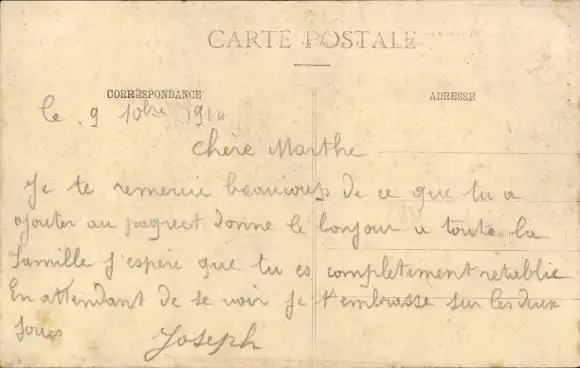 CARTE POSTALE
CORRESPONDANCE
ADRESSE
le 9 10bre 1914
chère Marthe
Je te remercie beaucoup de ce que tu a
ajouter au paquet donne le bonjour a toute la
famille j'espère que tu es completement retablie
En attendant de se voir je t'embrasse sur les deux
joues Joseph